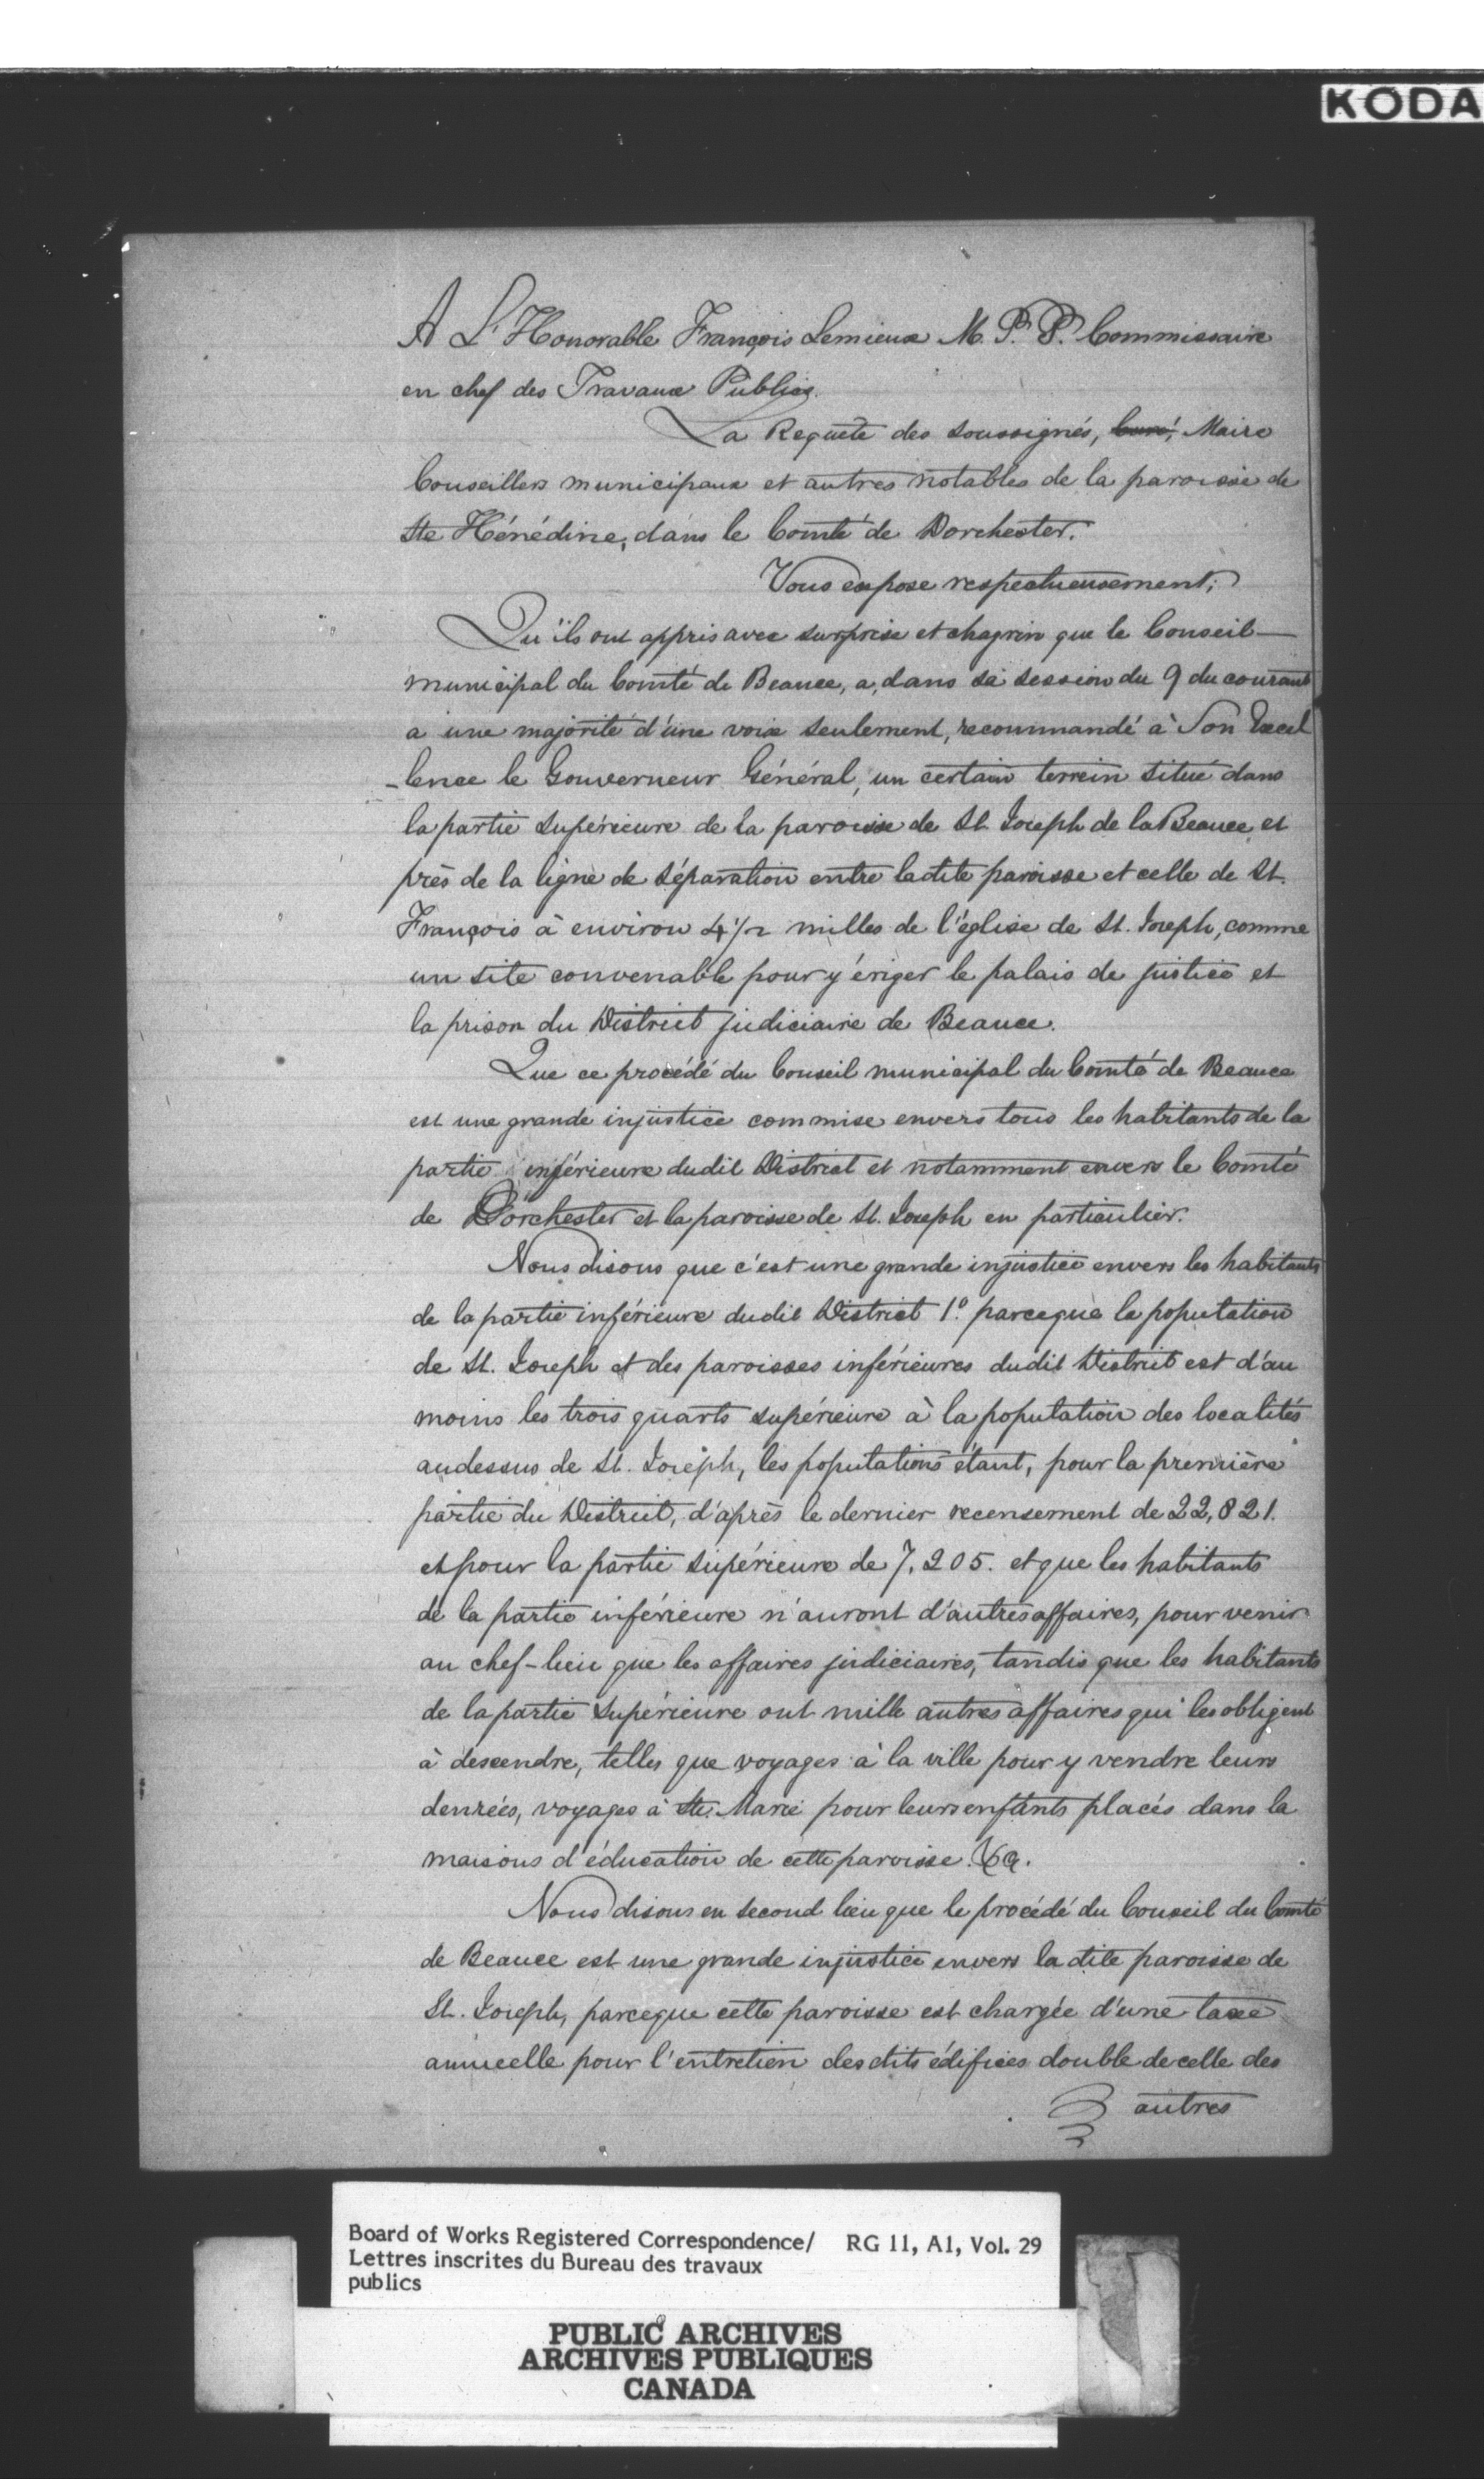 KODA
A L'Honorable François Lemieux M. P. P. Commissaire
en chef des Travaux Publics.
La Requête des soussignés, Curé, Maire
Conseillers municipaux et autres notables de la paroisse de
Ste Hénédine, dans le Comté de Dorchester.
Vous expose respectueusement;
Qu'ils ont appris avec surprise et chagrin que le Conseil
municipal du Comté de Beauce, a, dans sa session du 9 du courant
a une majorité d'une voix seulement, recommandé à Son Excel
-lence le Gouverneur Général, un certain terrein situé dans
la partie supérieure de la paroisse de St. Joseph de la Beauce, et
près de la ligne de séparation entre ladite paroisse et celle de St.
François à environ 4 1/2 milles de l'église de St. Joseph, comme
un site convenable pour y ériger le palais de justice et
la prison du District judiciaire de Beauce.
Que ce procédé du Conseil municipal du Comté de Beauce
est une grande injustice commise envers tous les habitants de la
partie inférieure dudit District et notamment envers le Comté
de Dorchester et la paroisse de St. Joseph en particulier.
Nous disons que c'est une grande injustice envers les habitants
de la partie inférieure dudit District 1.º parceque la population
de St. Joseph et des paroisses inférieures dudit District est d'au
moins les trois quarts supérieure à la population des localités
audessus de St. Joseph, les populations étant, pour la première
partie du District, d'après le dernier recensement de 22,821.
et pour la partie supérieure de 7,205. et que les habitants
de la partie inférieure n'auront d'autres affaires, pour venir
au chef-lieu que les affaires judiciaires, tandis que les habitants
de la partie supérieure ont mille autres affaires qui les obligent
à descendre, telles que voyages à la ville pour y vendre leurs
denrées, voyages à Ste. Marie pour leurs enfants placés dans la
maisons d'éducation de cette paroisse. &a.
Nous disons en second lieu que le procédé du Conseil du Comté
de Beauce est une grande injustice envers la dite paroisse de
St. Joseph, parceque cette paroisse est chargée d'une taxe
annuelle pour l'entretien des dits édifices double de celle des
autres
Board of Works Registered Correspondence/ RG 11, A1, Vol. 29
Lettres inscrites du Bureau des travaux
publics
PUBLIC ARCHIVES
ARCHIVES PUBLIQUES
CANADA